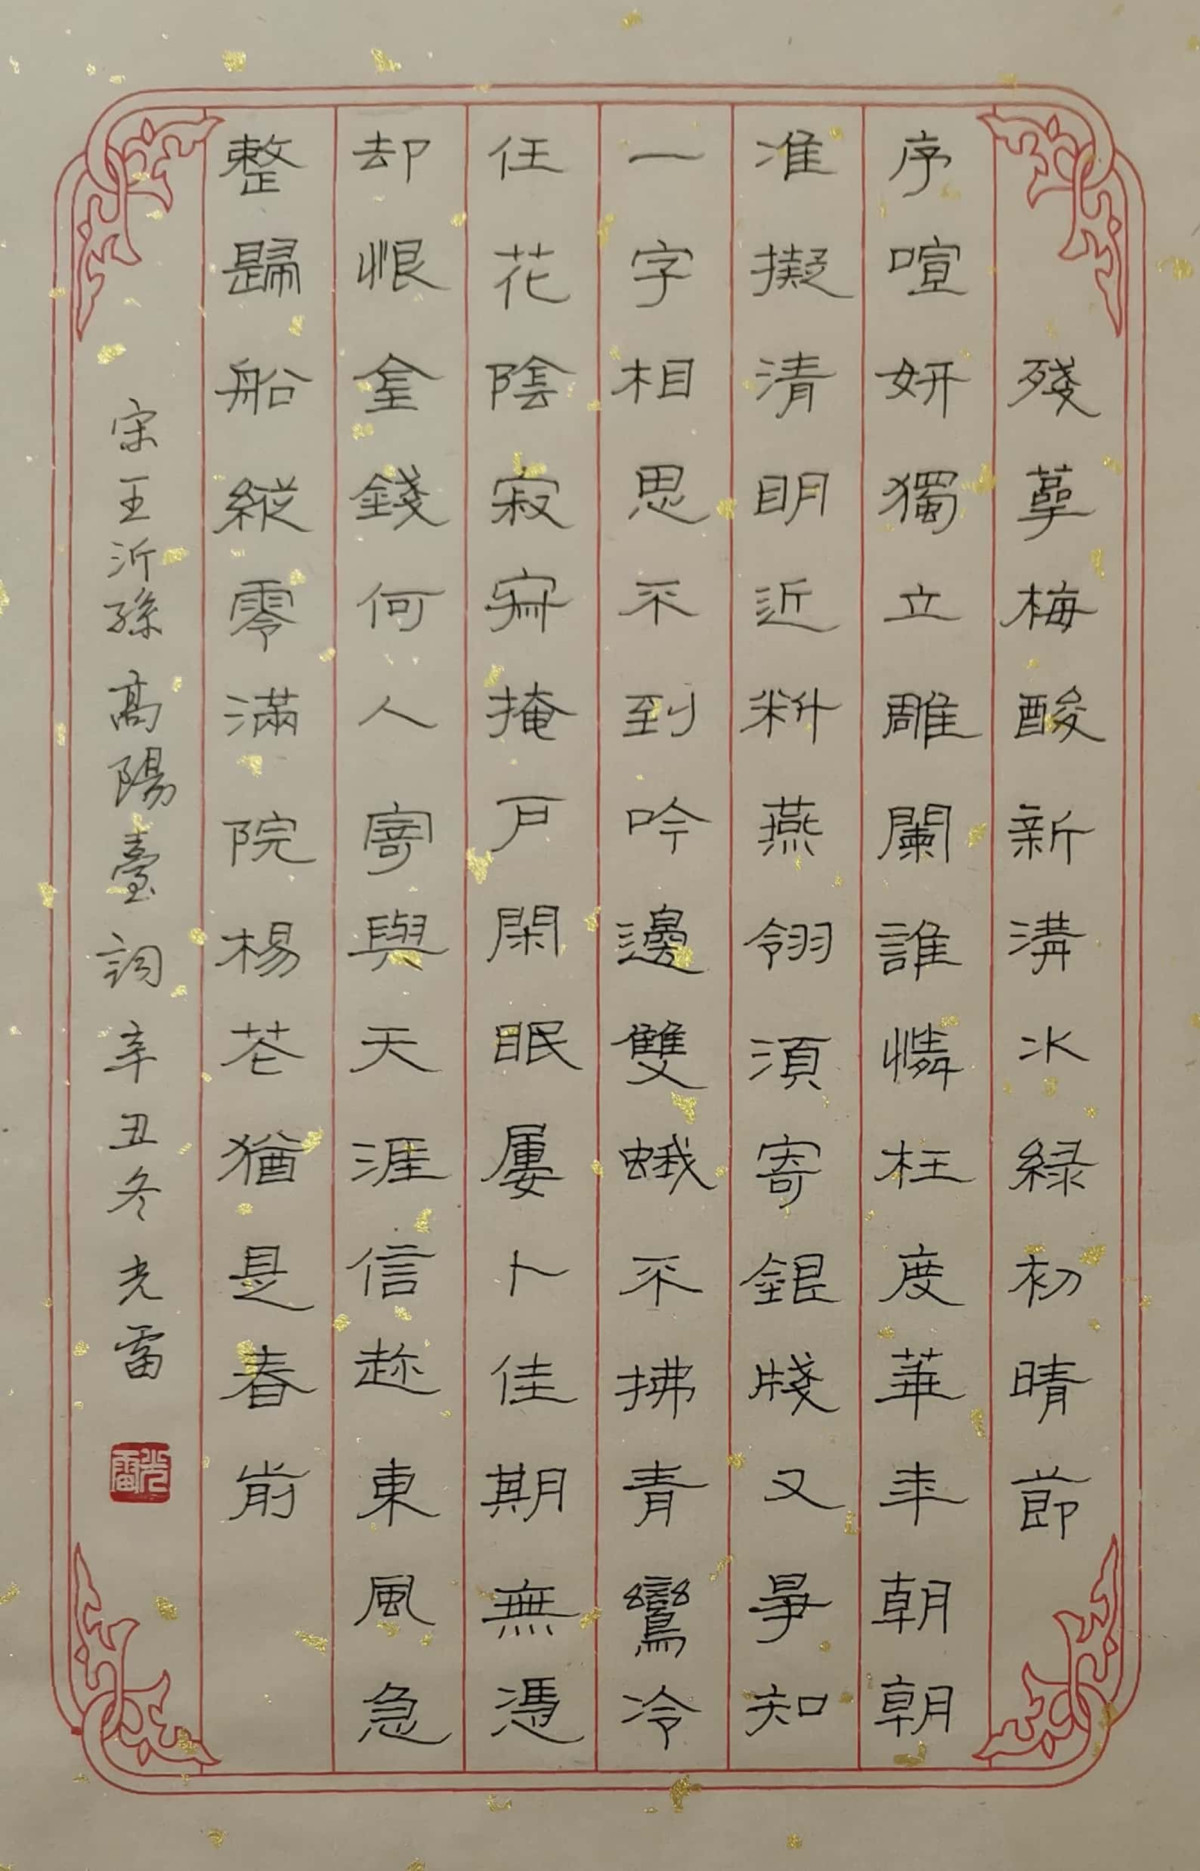 殘萼梅酸新溝水綠初晴節
序暄妍獨立雕闌誰憐枉度華年朝朝
准擬清明近料燕翎須寄銀牋又爭知
一字相思不到吟邊雙蛾不拂青鸞冷
任花陰寂寂掩戶閑眠屢卜佳期無憑
却恨金錢何人寄與天涯信趂東風急
整歸船縱零滿院楊花猶是春前
宋王沂孫高陽臺詞辛丑冬光雷
光雷